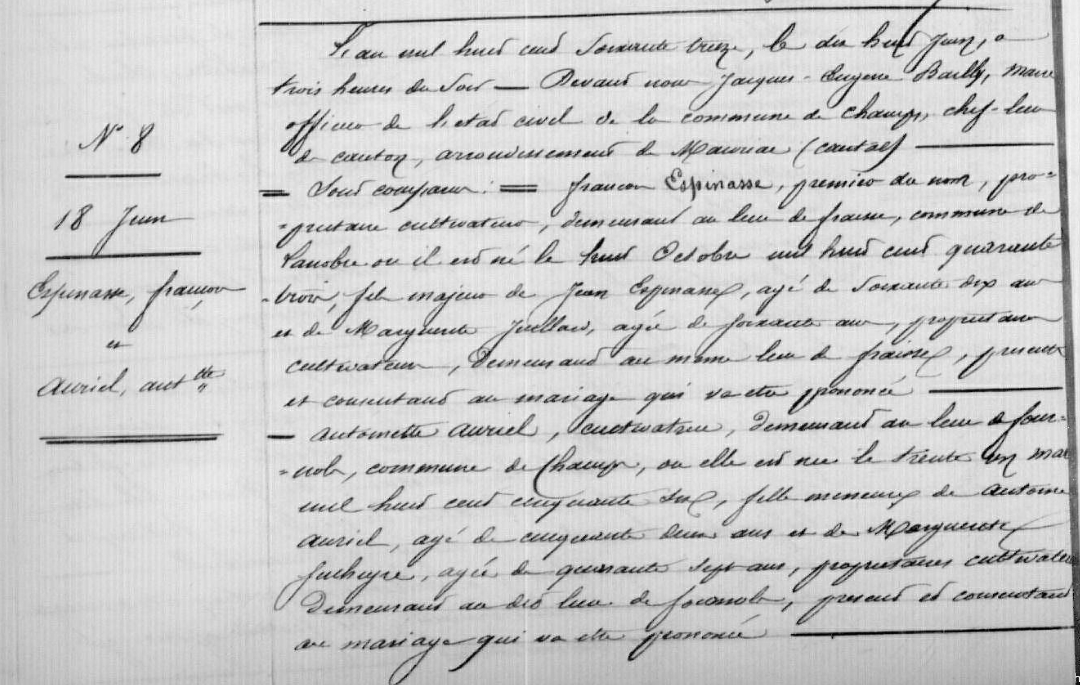 N° 8
18 Juin
Espinasse, françois
et
Auriel, antte
L'an mil huit cent soixante treize, le dix huit Juin, à
trois heures du soir — Devant nous Jacques-Eugène Bailly, maire
officier de l'état civil de la commune de Champs, chef-lieu
de canton, arrondissement de Mauriac (Cantal) —
= Sont comparus : = françois Espinasse, premier du nom, pro=
=priétaire cultivateur, demeurant au lieu de fraisse, commune de
Lanobre où il est né le huit Octobre mil huit cent quarante
-trois, fils majeur de Jean Espinasse, agé de soixante dix ans
et de Marguerite Juillard, agée de soixante ans, propriétaires
cultivateurs, demeurant au même lieu de fraisse, présents
et consentant au mariage qui va être prononcé —
— Antoinette Auriel, cultivatrice, demeurant au lieu de four=
=nols, commune de Champs, où elle est née le trente un mai
mil huit cent cinquante six, fille mineure de Antoine
Auriel, agé de cinquante deux ans et de Marguerite
Juiheyre, agée de quarante sept ans, propriétaires cultivateurs
Demeurant au dit lieu de fournols, présents et consentant
au mariage qui va être prononcé —